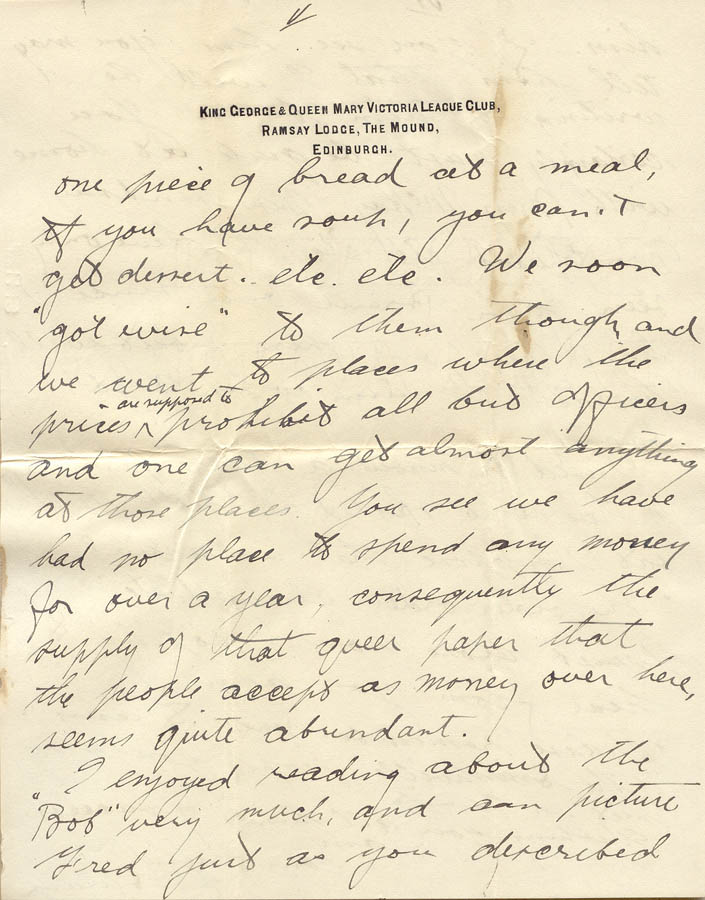 King George & Queen Mary Victoria League Club,
Ramsay Lodge, The Mound,
Edinburgh.
one piece of bread at a meal,
if you have soup, you can't
get dessert. etc. etc. We soon
"got wise" to them though, and
we went to places where the
are supposed to
prices ^ prohibit all but officers
and one can get almost anything
at those places. You see we have
had no place to spend any money
for over a year, consequently the
supply of that queer paper that
the people accept as money over here,
seems quite abundant.
I enjoyed reading about the
"Bob" very much, and can picture
Fred just as you described